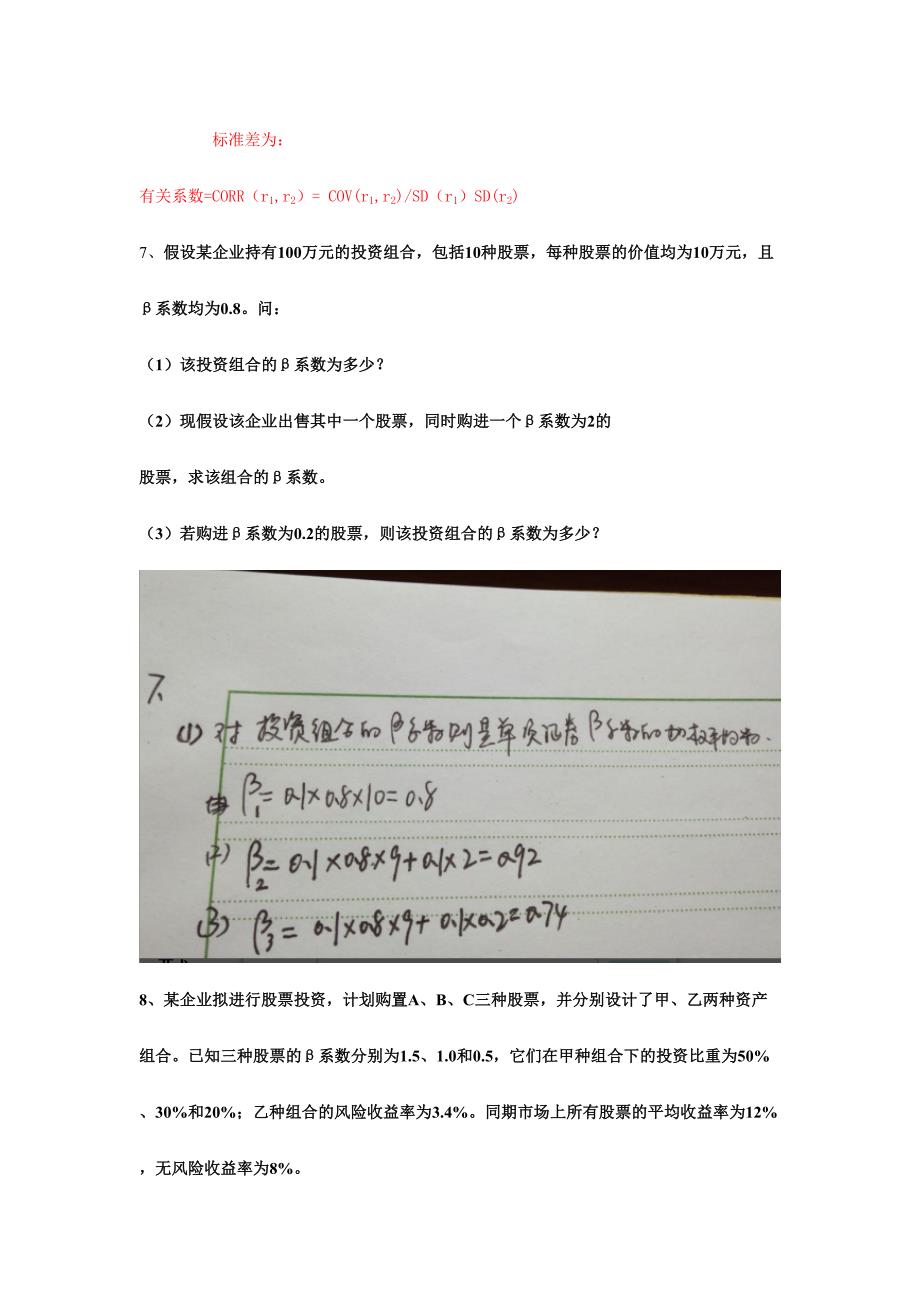 标准差为:
有关系数=CORR（r1,r2）= COV(r1,r2)/SD（r1）SD(r2)
7、假设某企业持有100万元的投资组合，包括10种股票，每种股票的价值均为10万元，且
β系数均为0.8。问：
（1）该投资组合的β系数为多少？
（2）现假设该企业出售其中一个股票，同时购进一个β系数为2的
股票，求该组合的β系数。
（3）若购进β系数为0.2的股票，则该投资组合的β系数为多少？
7、
(1) 对投资组合的β系数则是单项证券β系数的加权平均数.
β1=0.1×0.8×10=0.8
(2) β2=0.1×0.8×9+0.1×2=0.92
(3) β3=0.1×0.8×9+0.1×0.2=0.74
8、某企业拟进行股票投资，计划购置A、B、C三种股票，并分别设计了甲、乙两种资产
组合。已知三种股票的β系数分别为1.5、1.0和0.5，它们在甲种组合下的投资比重为50%
、30%和20%；乙种组合的风险收益率为3.4%。同期市场上所有股票的平均收益率为12%
，无风险收益率为8%。